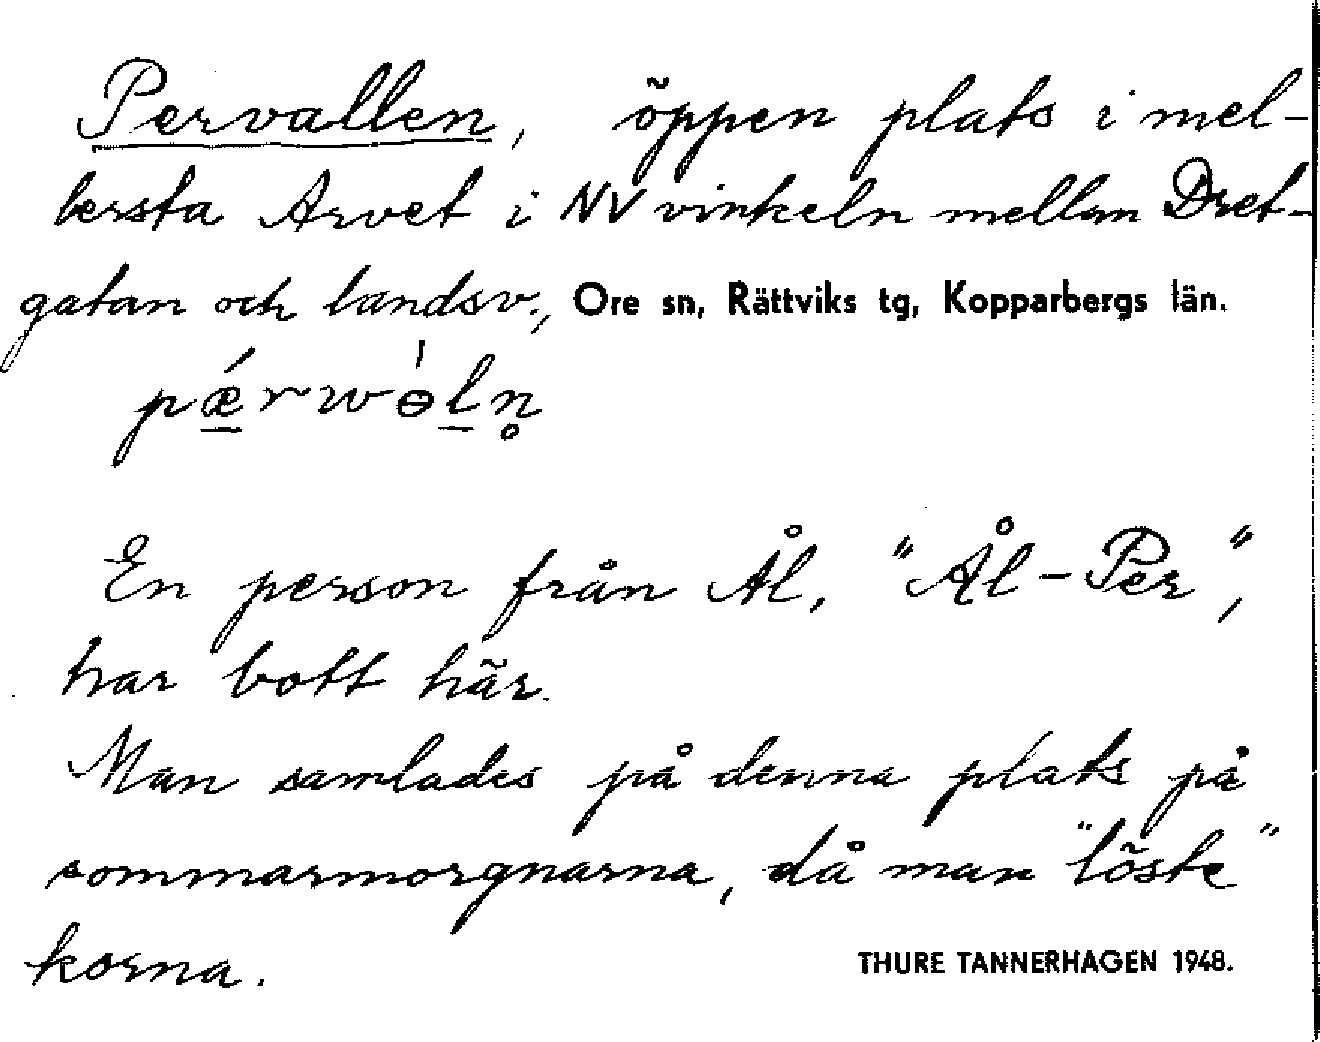 Pervallen, öppen plats i mel-
lersta Arvet i NV vinkeln mellan Dret-
gatan och landsv., Ore sn, Rättviks tg, Kopparbergs län.
pǽrwɵ́ln̥
En person från Ål, "Ål-Per",
har bott här.
Man samlades på denna plats på
sommarmorgnarna, då man "löste"
korna.
THURE TANNERHAGEN 1948.